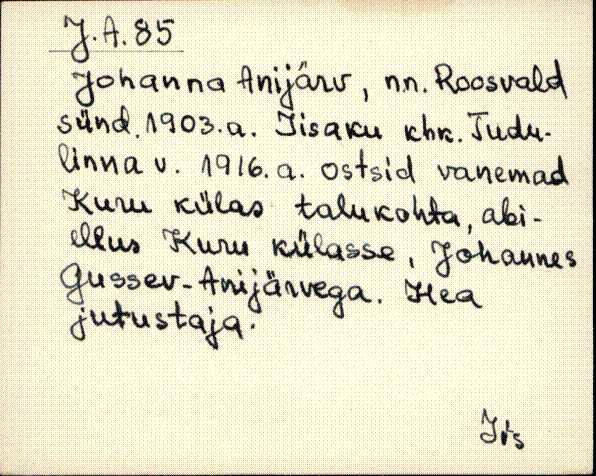 J.A.85
Johanna Anijärv, nn. Roosvald
sünd. 1903.a. Iisaku khk. Tudu-
linna v. 1916.a. ostsid vanemad
Kuru külas talukohta, abi-
ellus Kuru külasse, Johannes
Gussev-Anijärvega. Hea
jutustaja.
Iis